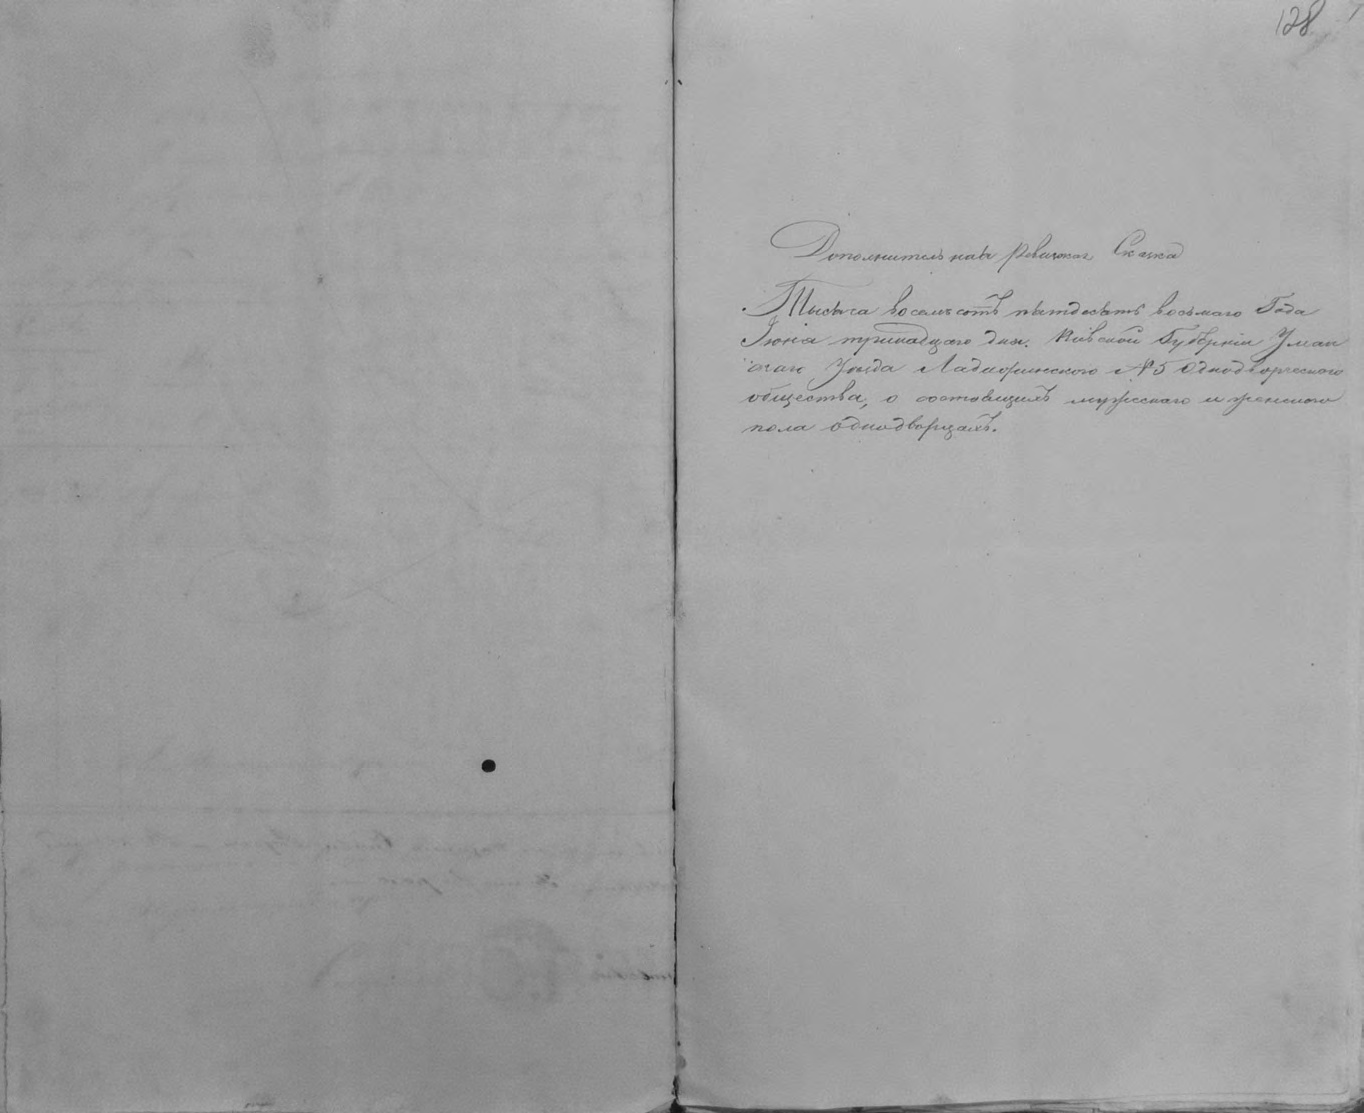 128
Дополнительная ревизская Сказка
Тысяча восемьсотъ пятдесятъ восьмаго Года
Іюня тринадцаго дня. Кіевской Губерніи Уман
скаго Уезда Ладыжинского №5 Однодворческого
общества, о состоящихъ мужескаго и женского
пола однодворцахъ.